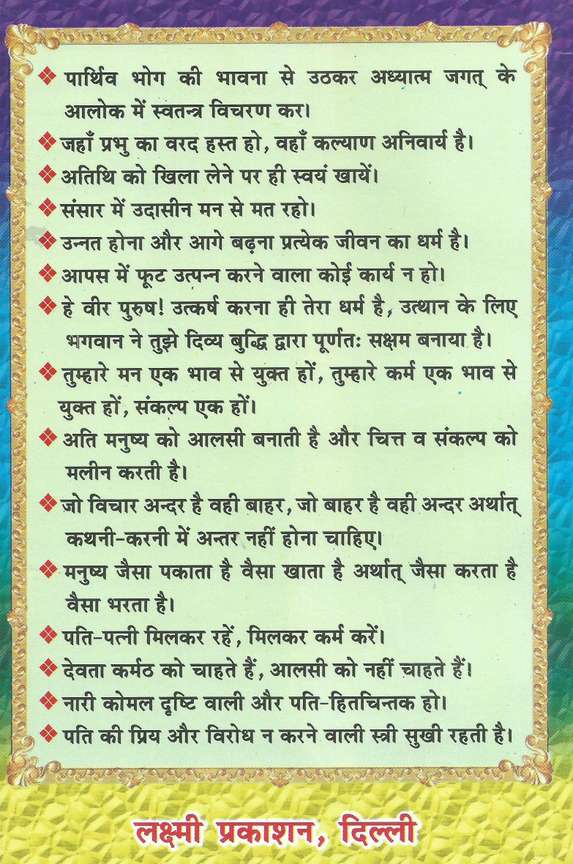 ❖ पार्थिव भोग की भावना से उठकर अध्यात्म जगत् के
आलोक में स्वतन्त्र विचरण कर।
❖ जहाँ प्रभु का वरद हस्त हो, वहाँ कल्याण अनिवार्य है।
❖ अतिथि को खिला लेने पर ही स्वयं खायें।
❖ संसार में उदासीन मन से मत रहो।
❖ उन्नत होना और आगे बढ़ना प्रत्येक जीवन का धर्म है।
❖ आपस में फूट उत्पन्न करने वाला कोई कार्य न हो।
❖ हे वीर पुरुष! उत्कर्ष करना ही तेरा धर्म है, उत्थान के लिए
भगवान ने तुझे दिव्य बुद्धि द्वारा पूर्णतः सक्षम बनाया है।
❖ तुम्हारे मन एक भाव से युक्त हों, तुम्हारे कर्म एक भाव से
युक्त हों, संकल्प एक हों।
❖ अति मनुष्य को आलसी बनाती है और चित्त व संकल्प को
मलीन करती है।
❖ जो विचार अन्दर है वही बाहर, जो बाहर है वही अन्दर अर्थात्
कथनी-करनी में अन्तर नहीं होना चाहिए।
❖ मनुष्य जैसा पकाता है वैसा खाता है अर्थात् जैसा करता है
वैसा भरता है।
❖ पति-पत्नी मिलकर रहें, मिलकर कर्म करें।
❖ देवता कर्मठ को चाहते हैं, आलसी को नहीं चाहते हैं।
❖ नारी कोमल दृष्टि वाली और पति-हितचिन्तक हो।
❖ पति की प्रिय और विरोध न करने वाली स्त्री सुखी रहती है।
लक्ष्मी प्रकाशन, दिल्ली